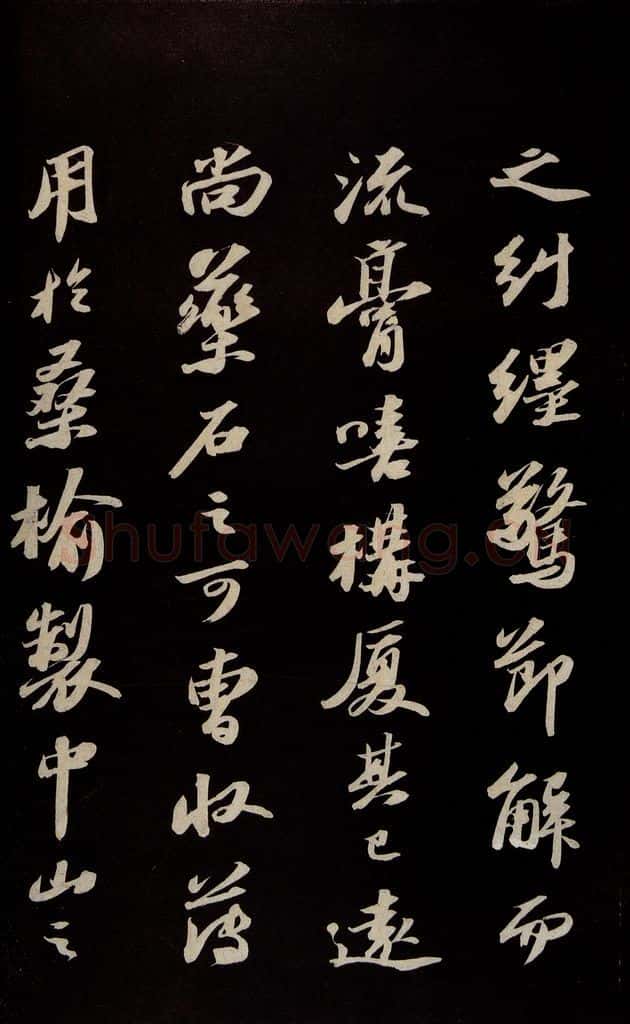 之糾纆驚節解而
流膏嘻構厦其已遠
尚藥石之可曹收薄
用於桑榆製中山之
shufawang.cn